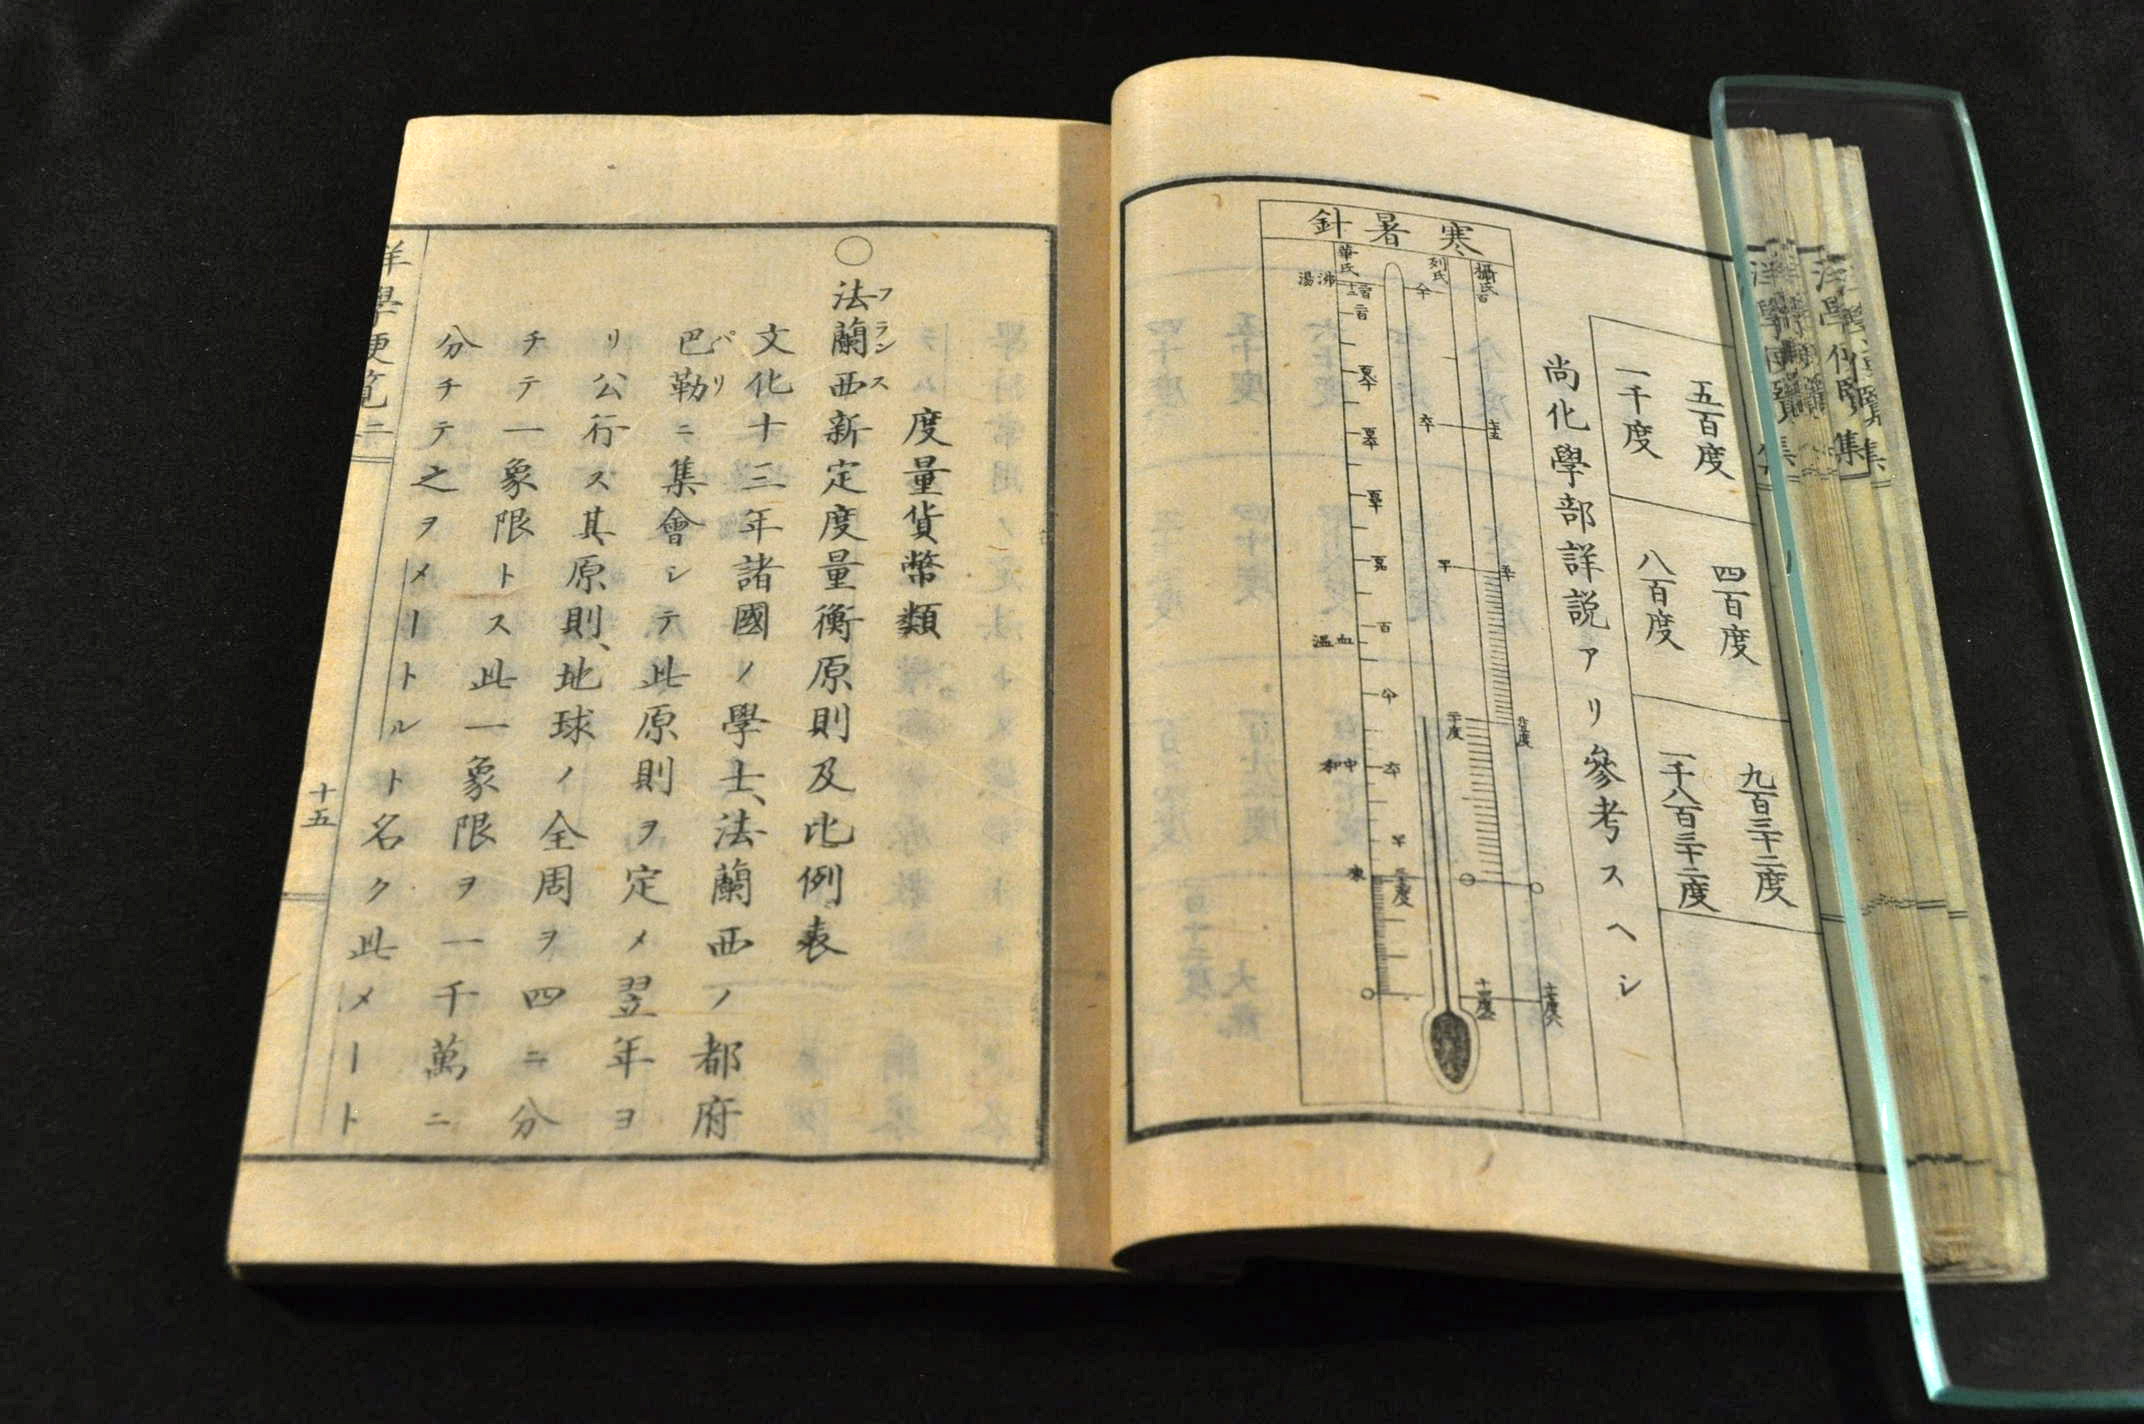 五百度
四百度
九百三十二度
一千度
八百度
一千八百三十二度
尚化學部詳説アリ參考スヘシ
寒暑針
攝氏
列氏
華氏
沸湯
血温
中和
氷
度量貨幣類
○法蘭西新定度量衡原則及比例表
フランス
文化十三年諸國ノ學士、法蘭西ノ都府
巴勒ニ集會シテ此原則ヲ定メ翌年ヨ
パリ
リ公行ス其原則、地球ノ全周ヲ四ニ分
チテ一象限トス此一象限ヲ一千萬ニ
分チテ之ヲメートルト名ク此メート
洋學便覧二
十五